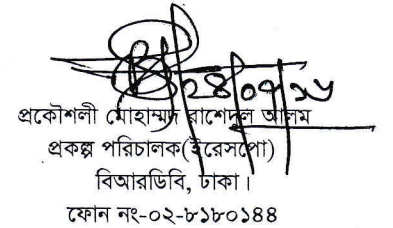 ২৪/০৭/১৬
প্রকৌশলী মোহাম্মদ রাশেদুল আলম
প্রকল্প পরিচালক(ইরেসপো)
বিআরডিবি, ঢাকা।
ফোন নং-০২-৮১৮০১৪৪